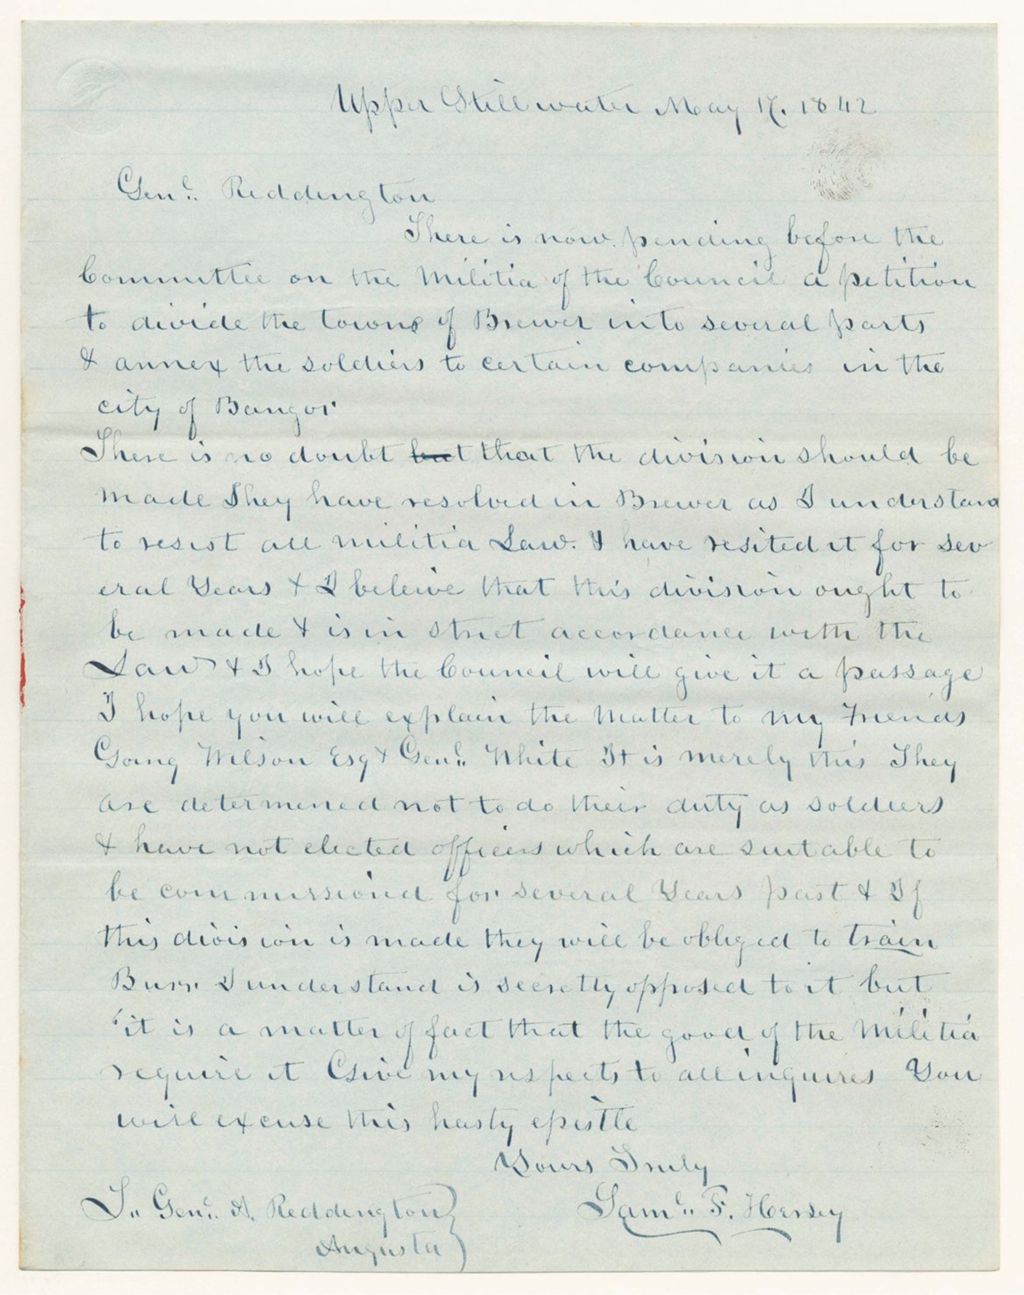 Upper Stillwater May 17. 1842
Genl. Reddington
There is now pending before the
Committee on the Militia of the Council a petition
to divide the town of Brewer into several parts
& annex the soldiers to certain companies in the
city of Bangor
There is no doubt but that the division should be
made They have resolved in Brewer as I understand
to resist all militia Law. I have resited it for sev
eral Years & I beleive that this division ought to
be made & is in strict accordance with the
Law & I hope the Council will give it a passage
I hope you will explain the Matter to my Friends
Going Wilson Esq & Genl. White It is merely this They
are determened not to do their duty as soldiers
& have not elected officers which are suitable to
be commissiond for several Years past & If
this division is made they will be obliged to train
Burr I understand is secretly opposed to it but
it is a matter of fact that the good of the Militia
require it Give my respects to all inquires You
will excuse this hasty epistle
Yours Truly
To Genl. A. Reddington Saml. F. Hersey
Augusta